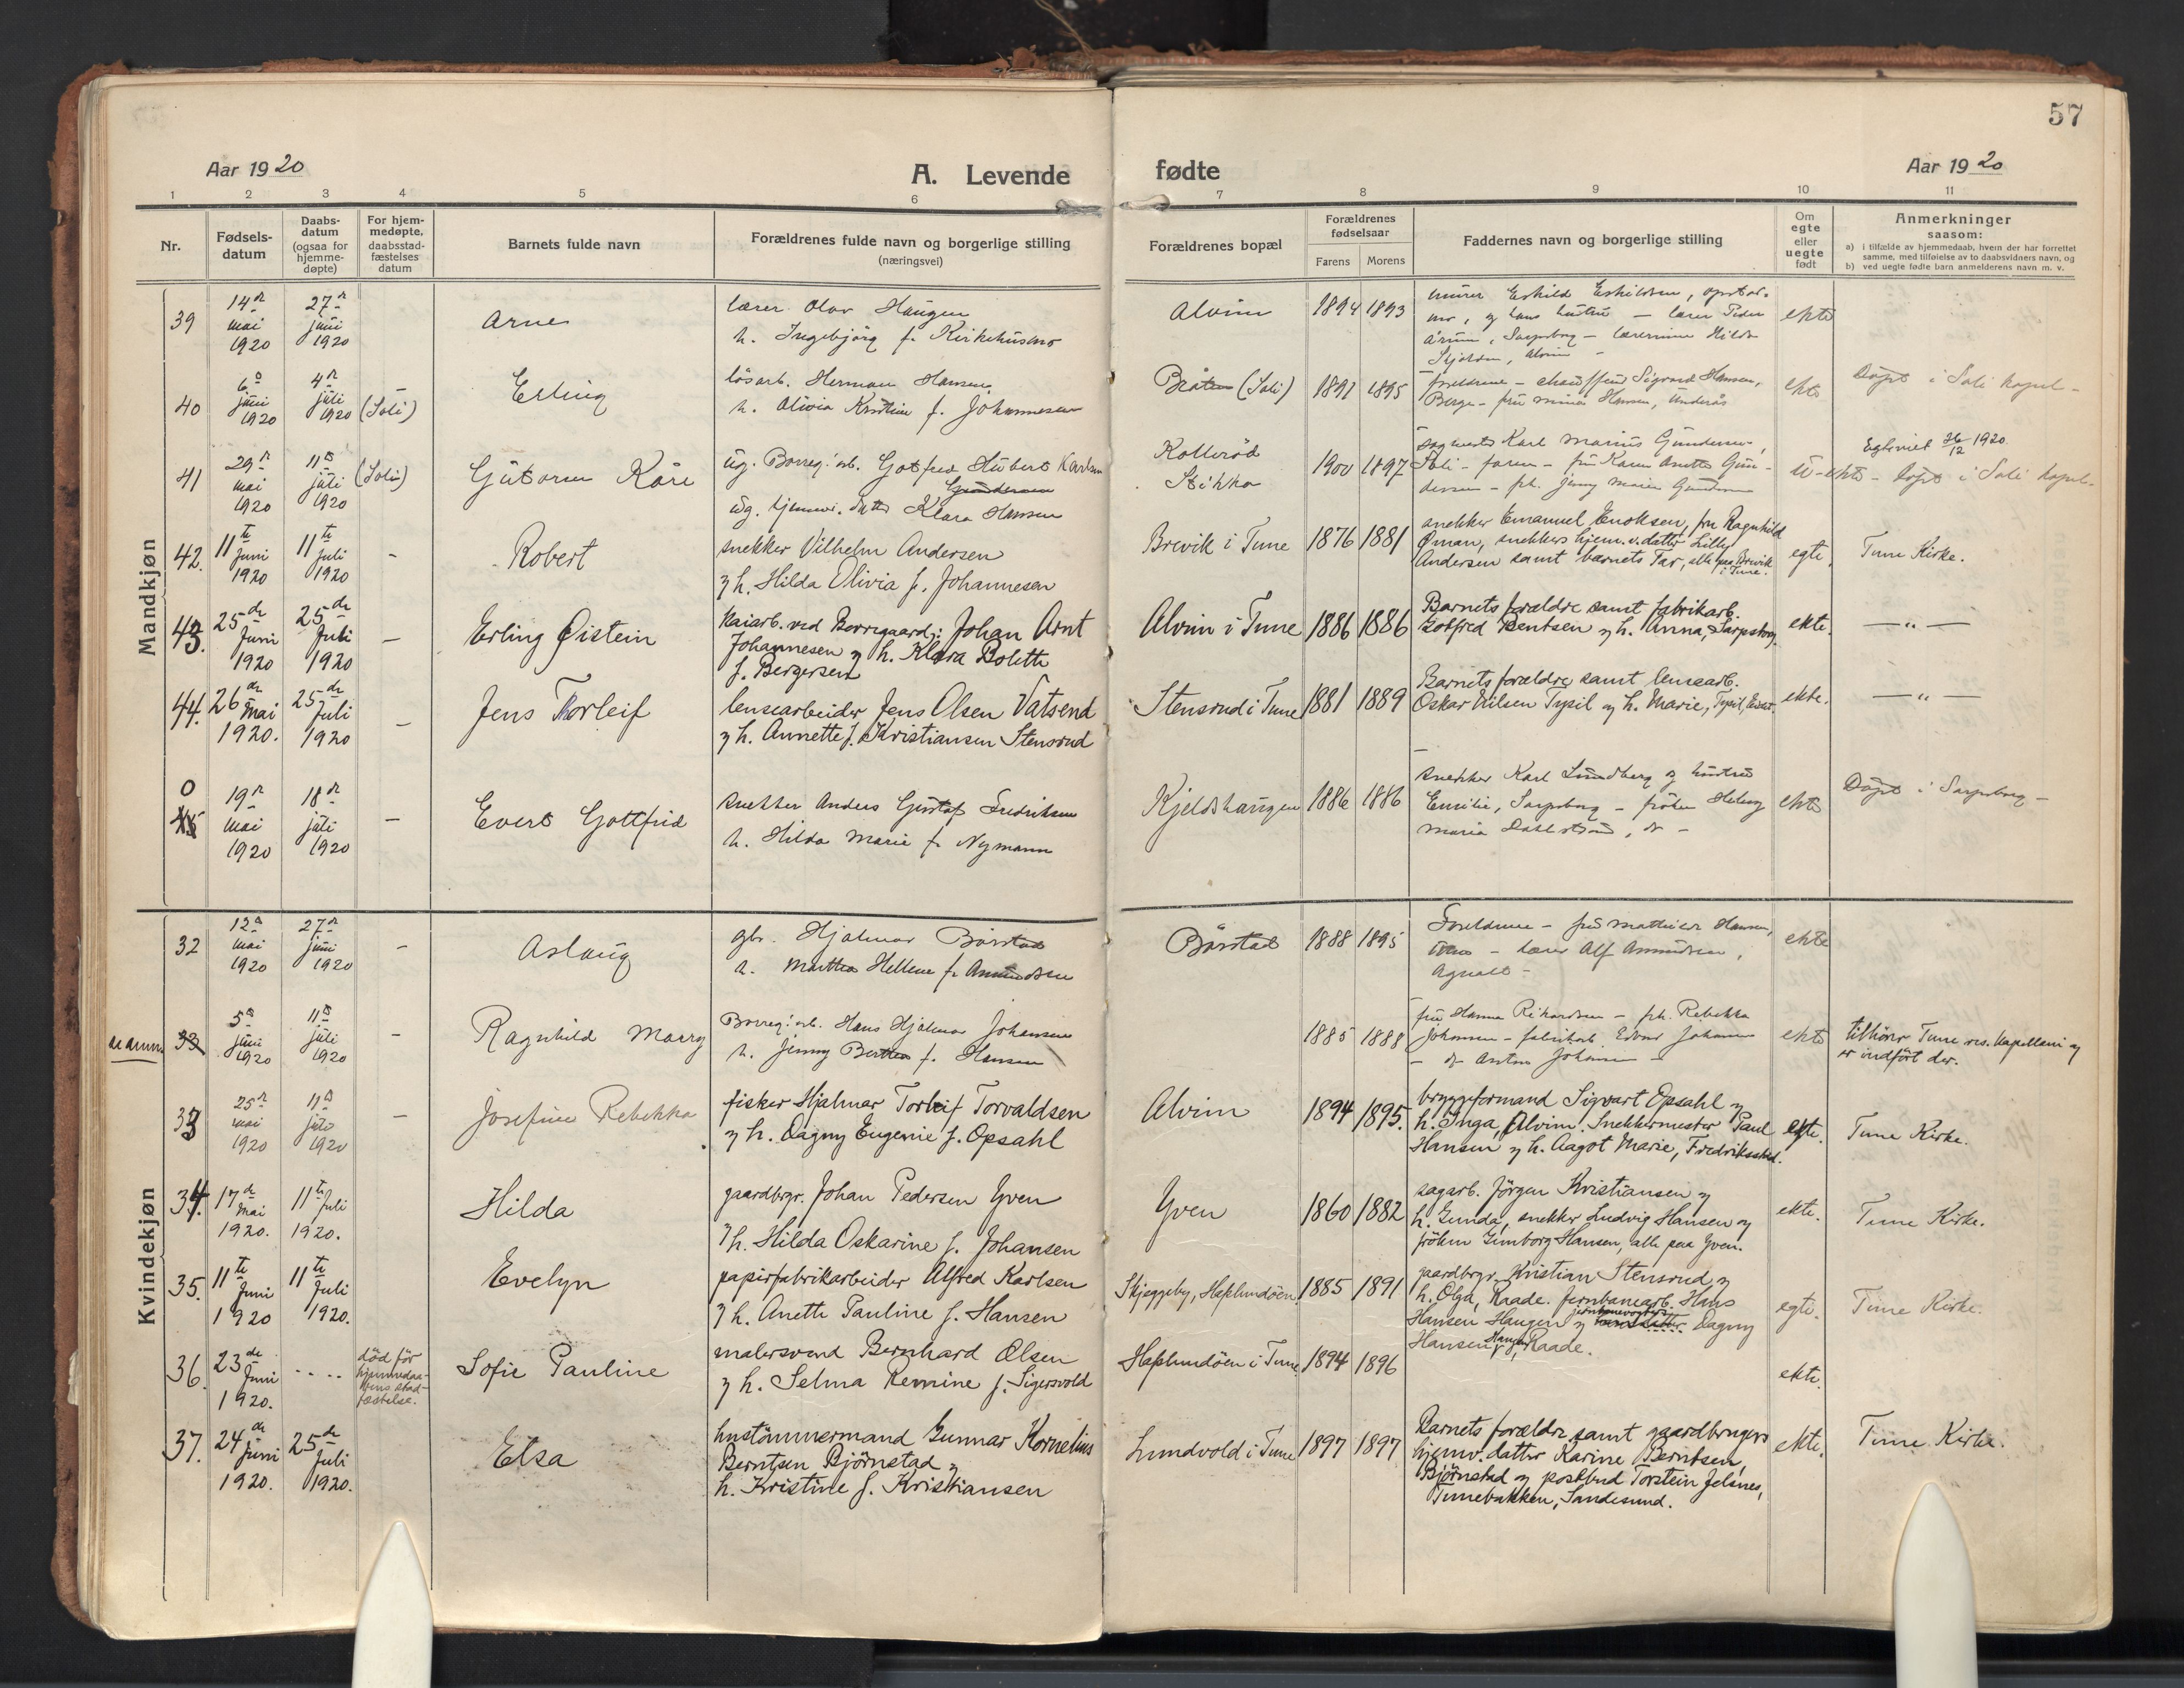 57
Aar 1920
A. Levende fødte
Aar 1920
1 2 3 4 5 6 7 8 9 10 11
Nr.
Fødsels-
datum
Daabs-
datum
(ogsaa for
hjemme-
døpte)
For hjem-
medøpte,
daabsstad-
fæstelses
datum
Barnets fulde navn
Forældrenes fulde navn og borgerlige stilling
(næringsvei)
Forældrenes bopæl
Forældrenes
fødselsaar
Farens Morens
Faddernes navn og borgerlige stilling
Om
egte
eller
uegte
født
Anmerkninger
saasom:
a) i tilfælde av hjemmedaab, hvem der har forrettet
samme, med tilføielse av to daabsvidners navn, og
b) ved uegte fødte barn anmelderens navn m. v.
Mandkjøn
39
14de mai 1920
27de juni 1920
Arne
lærer Olav Haugen
h. Ingebjörg f. Kirkehusmo
Alvim
1894 1893
murer Eskild Eskildsen,
lærer Peder
Sarpsborg - lærerinne Hilda
Alvim
ekte
40
6 juni 1920
4de juli 1920
(Soli)
Erling
lösarb. Herman Hansen
h. Olivia Kristine f. Johannesen
Bråten (Soli)
1891 1895
foreldrene - chauffeur Sigvard Hansen,
Berge - fru Mina Hansen,
ekte
Döpt i Soli kapel -
41
29de mai 1920
11te juli 1920
(Soli)
Gutorm Kåre
ug. Borreg. arb. Gotfred Hubert Karlsen
Gundersen
ug. hjemmev. datter Klara Hansen
Kollerød
Stikka
1900 1897
Karl Marius Gundersen,
Soli - faren - fru Karen Anette Gun-
dersen - frk. Jenny Marie Gundersen
u-ekte
Egteviet 26/12 1920.
- Döpt i Soli kapel -
42.
11te Juni 1920
11te Juli 1920
-
Robert
snekker Vilhelm Andersen
og h. Hilda Olivia f. Johannesen
Brevik i Tune
1876 1881
snekker Emanuel Enoksen, fru Ragnhild
Öman, snekkers hjem.v. datter Lilly
Andersen samt barnets Far, alle paa Brevik
i Tune.
egte.
Tune Kirke.
43.
25de Juni 1920
25de Juli 1920
-
Erling Øistein
Kaiarb. ved Borregaard: Johan Arnt
Johannesen og h. Klara Bolette
f. Bergersen
Alvim i Tune
1886 1886
Barnets forældre samt fabrikarb.
Gotfred Bentsen og h. Anna, Sarpsborg.
ekte.
— " —
44.
26de Mai 1920.
25de Juli 1920
-
Jens Thorleif
lensearbeider Jens Olsen Vatsend
og h. Annette f. Kristiansen Stensrud
Stensrud i Tune
1881 1889
Barnets forældre samt lensearb.
Oskar Nilsen Tysil og h. Marie, Tysil,
ekte.
— " —
0
45
19de mai 1920
18de juli 1920
-
Evert Gottfrid
snekker Anders Gustaf Fredriksen
h. Hilda Marie f. Nymann
Kjeldshaugen
1886 1886
snekker Karl Lundberg og hustru
Emilie, Sarpsborg - fröken Helny
Maria
ekte
Döpt i Sarpsborg -
Kvindekjøn
32
12te mai 1920
27de juni 1920
-
Aslaug
gbr. Hjalmar Börstad
h. Marthea Hellene f. Amundsen
Börstad
1888 1895
Foreldrene - fru Mathilde Hansen,
lærer Alf Amundsen,
Agnalt -
ekte
33
5te juni 1920
11te juli 1920
-
Ragnhild Marry
Borreg. arb. Hans Hjalmar Johansen
h. Jenny Berthea f. Hansen
1885 1888
fru Hanna Rikardsen - frk. Rebekka
Johansen - fabrikarb. Edvard Johansen
- Anton Johansen -
ekte
tilhører Tune res. kapellani og
er indført der.
33
25de mai 1920
11te juli 1920
-
Josefine Rebekka
fisker Hjalmar Torleif Torvaldsen
og h. Dagny Eugenie f. Opsahl
Alvim
1894 1895.
bryggeformand Sigvart Opsahl og
h. Inga, Alvim. Snekkermester Paul
Hansen og h. Aagot Marie, Fredriksstad.
egte.
Tune Kirke.
34.
17de Mai 1920.
11te Juli 1920.
Hilda
gaardbrgr. Johan Pedersen Yven
og h. Hilda Oskarine f. Johansen
Yven
1860 1882
sagarb. Jörgen Kristiansen og
h. Gunda, snekker Ludvig Hansen og
fröken Gunborg Hansen, alle paa Yven.
ekte.
Tune Kirke.
35.
11te Juni 1920
11te Juli 1920.
Evelyn
papirfabrikarbeider Alfred Karlsen
og h. Anette Pauline f. Hansen
Skjeggeby, Haslundöen.
1885 1891
gaardbrgr. Kristian Stensrud og
h. Olga, Raade. jernbanearb. Hans
Hansen Haugen og jernbanevogters datter Dagny
Hansen Haugen, Raade.
egte.
Tune Kirke.
36.
23de Juni 1920.
....
död för
hjemmedaa-
bens stad-
fæstelse.
Sofie Pauline
malersvend Bernhard Olsen
og h. Selma Remine f. Sigersvold
Haslundöen i Tune
1894 1896
ekte.
37.
24de Juni 1920.
25de Juli 1920.
Elsa
hustömmermand Gunnar Kornelius
Berntsen Björnstad og
h. Kristine f. Kristiansen
Lundvold i Tune
1897 1897
Barnets forældre samt gaardbrugers
hjemv. datter Karine Berntsen,
Björnstad og postbud Torstein Jelsnes,
Tunebakken, Sandesund.
ekte.
Tune Kirke.